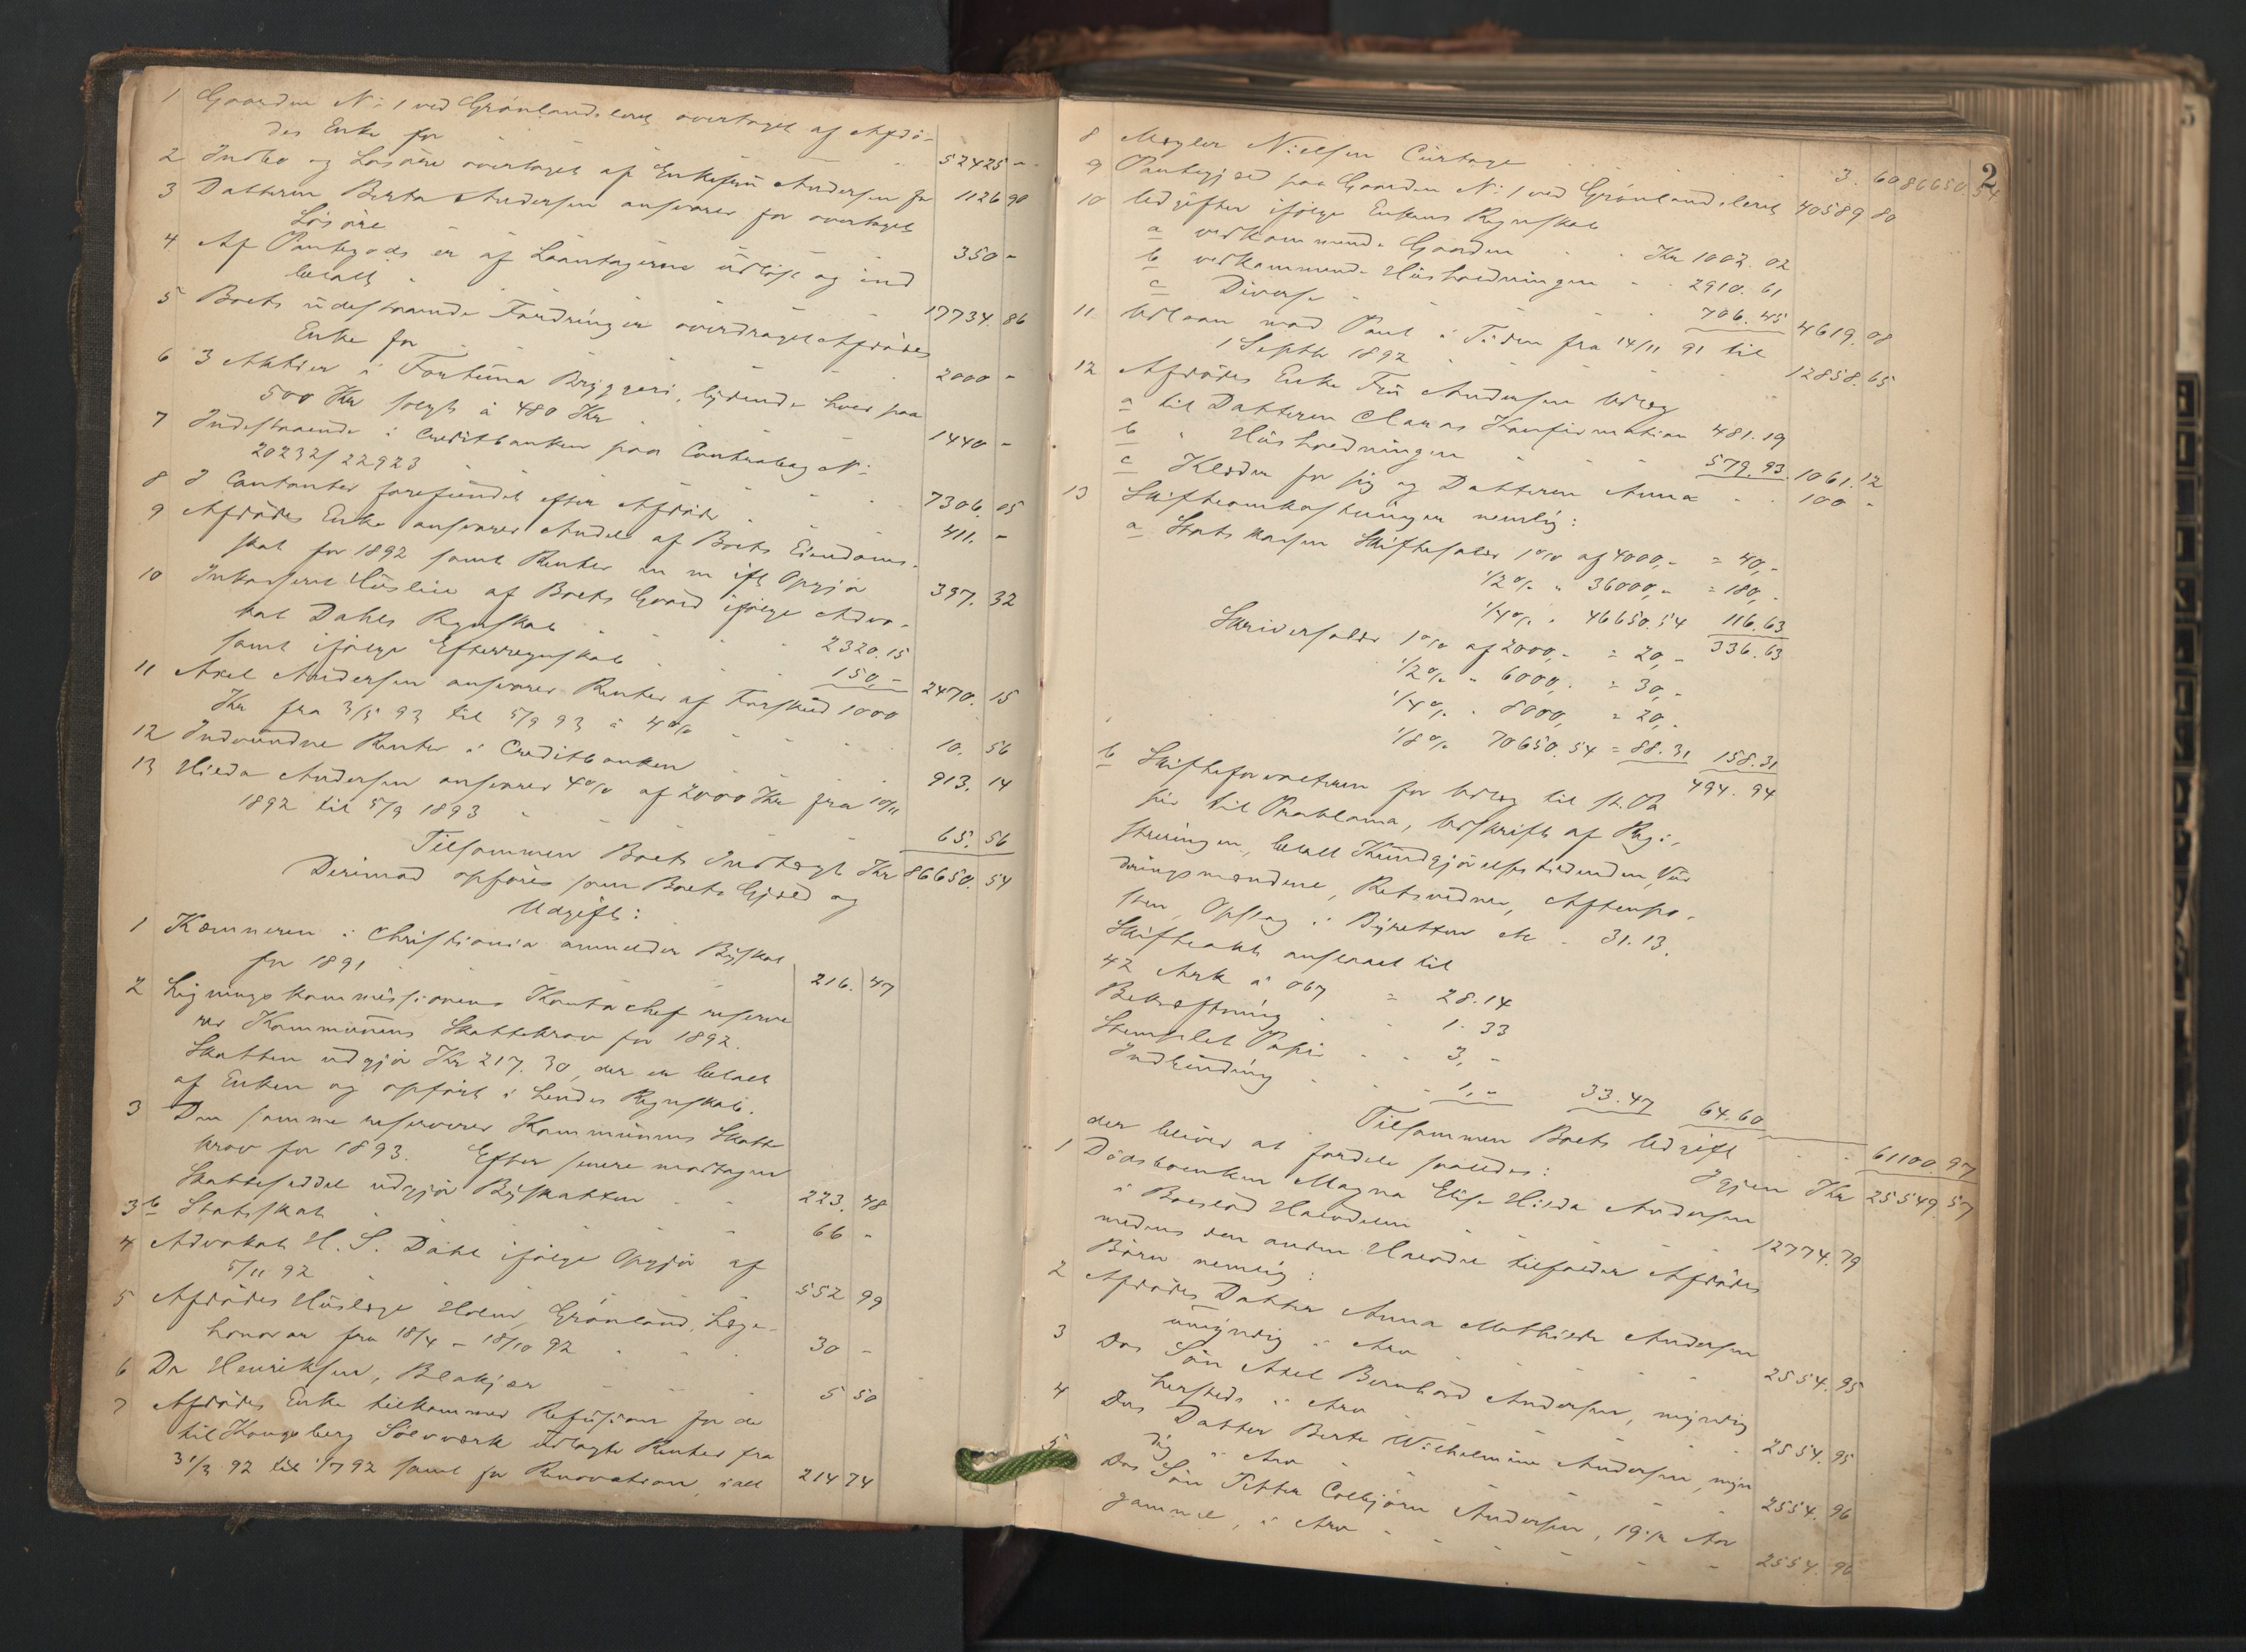 1 Gaarden No 1 ved Grønlandsleret overtaget af Afdø-
des Enke for 52425 -
2 Indbo og Løsøre overtaget af Enkefru Andersen for 1126 90
3 Datteren Berta Andersen ansvarer for overtaget
Løsøre 350 -
4 Af Pantegods er af Laantagerne udløst og ind
betalt 17734. 86
5 Boets udestaaende Fordringer overdraget Afdødes
Enke for 2000 -
6 3 Aktier i Fortuna Bryggeri, lydende hver paa
500 Kr solgt à 480 Kr 1440 -
7 Indestaaende i Creditbanken paa Contrabog No
20232/22923 7306. 05
8 I Contanter forefundet efter Afdøde 411. -
9 Afdødes Enke ansvarer Andel af Boets Eiendoms-
skat for 1892 samt Renter m m ifl Opgjør 397. 32
10 Inkasseret Husleie af Boets Gaard ifølge Advo-
kat Dahls Regnskab 2320.15
samt ifølge Efterregnskab 150,- 2470. 15
11 Axel Andersen ansvarer Renter af Forskud 1000
Kr fra 3/5 93 til 5/9 93 à 4% 10. 56
12 Indvundne Renter i Creditbanken 913. 14
13 Hilda Andersen ansvarer 4% af 2000 Kr fra 10/11
1892 til 5/9 1893 65. 56
Tilsammen Boets Indtægt Kr 86650. 54
Derimod opføres som Boets Gjæld og
Udgift:
1 Kæmneren i Christiania anmelder Byskat
for 1891 216. 47
2 Ligningskommissionens Kontorchef reserve
rer Kommunens Skattekrav for 1892.
Skatten udgjør Kr 217. 30, der er betalt
af Enken og opført i hendes Regnskab.
3 Den samme reserverer Kommunens Skatte
krav for 1893. Efter senere modtagen
Skatteseddel udgjør Byskatten 223. 48
3 b Statsskat 66 -
4 Advokat H. S. Dahl ifølge Opgjør af
5/11 92 552 99
5 Afdødes Huslæge Holm, Grønland, Læge-
honorar fra 18/4 - 18/10 92 30 -
6 Dr Henriksen, Blakjer 5 50
7 Afdødes Enke tilkommer Refusion for de
til Kongsberg Sølvværk udlagte Renter fra
31/3 92 til 1/7 92 samt for Renovation, ialt 214 74
2
86650. 54
8 Mægler Nielsen Curtage 3. 60
9 Pantegjæld paa Gaarden No 1 ved Grønlandsleret 40589 80
10 Udgifter ifølge Enkens Regnskab
a vedkommende Gaarden Kr 1002. 02
b vedkommende Husholdningen 2910. 61
c Diverse 706. 45 4619. 08
11 Udlaan mod Pant i Tiden fra 14/11 91 til
1 Septbr 1892 12858. 65
12 Afdødes Enke Fru Andersen Udlæg
a til Datteren Claras Konfirmation 481.19
b " Husholdningen 579. 93 1061. 12
c Klæder for sig og Datteren Anna 100 -
13 Skifteomkostninger nemlig:
a Stats kassen Skiftesalær 1% af 4000,- = 40,-
1/2% " 36000,- = 180,-
1/4% " 46650.54 116.63
336.63
Skriversalær 1% af 2000,- = 20,-
1/2% " 6000,- = 30,-
1/4% " 8000, = 20,-
1/8% 70650.54 = 88.31 158.31
494. 94
b Skifteforvalteren for Udlæg til St. Pa
pir til Proklama, Udskrift af Regi-
streringen, betalt Kundgjørelsestidenden, Vur
deringsmændene, Retsvidner, Aftenpo-
sten, Opslag i Byretten etc 31.13.
Skifteakt anslaaet til
42 Ark à 067 = 28.14
Bekræftning 1. 33
Stemplet Papir 3,-
Indbinding 1,- 33.47 64.60
Tilsammen Boets Udgift 61100. 97
Igjen Kr 25549. 57
der bliver at fordele saaledes:
1 Dødsboenken Magna Elise Hilda Andersen
i Boeslod Halvdelen 12774. 79
medens den anden Halvdel tilfalder Afdødes
Børn nemlig:
2 Afdødes Datter Anna Mathilde Andersen
umyndig i Arv 2554. 95
3 Dos Søn Axel Bernhard Andersen, myndig
hersteds i Arv 2554. 95
4 Dos Datter Berta Wilhelmine Andersen, myn
dig i Arv 2554. 96
5 Dos Søn Petter Colbjørn Andersen, 19 1/2 Aar
gammel, i Arv 2554. 96